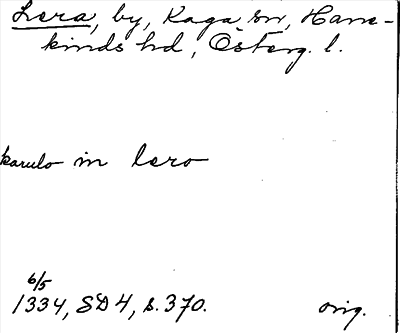 Lera, by, Kaga sn, Hane-
kinds hd, Österg. l.
karulo in lero
6/5
1334, SD 4, s. 370. orig.